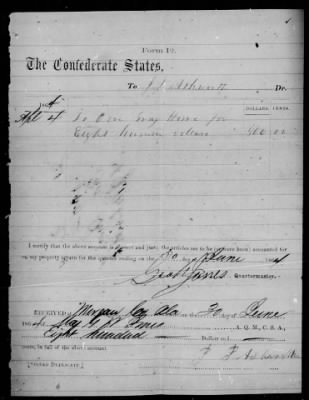 Form 12.
The Confederate States,
To Dr.
DOLLARS. CENTS.
1864
Apl 4 To One Bay Horse for
Eight hundred dollars 800 00
I certify that the above account is correct and just; the articles are to be (or have been) accounted for
on my property return for the quarter ending on the 30 day of June 1864
Quartermaster.
RECEIVED at Morgan Co Ala the 30 day of June
1864 of A. Q. M., C. S. A.,
Eight hundred Dollars and
cents, in full of the above account.
[SIGNED DUPLICATE.]